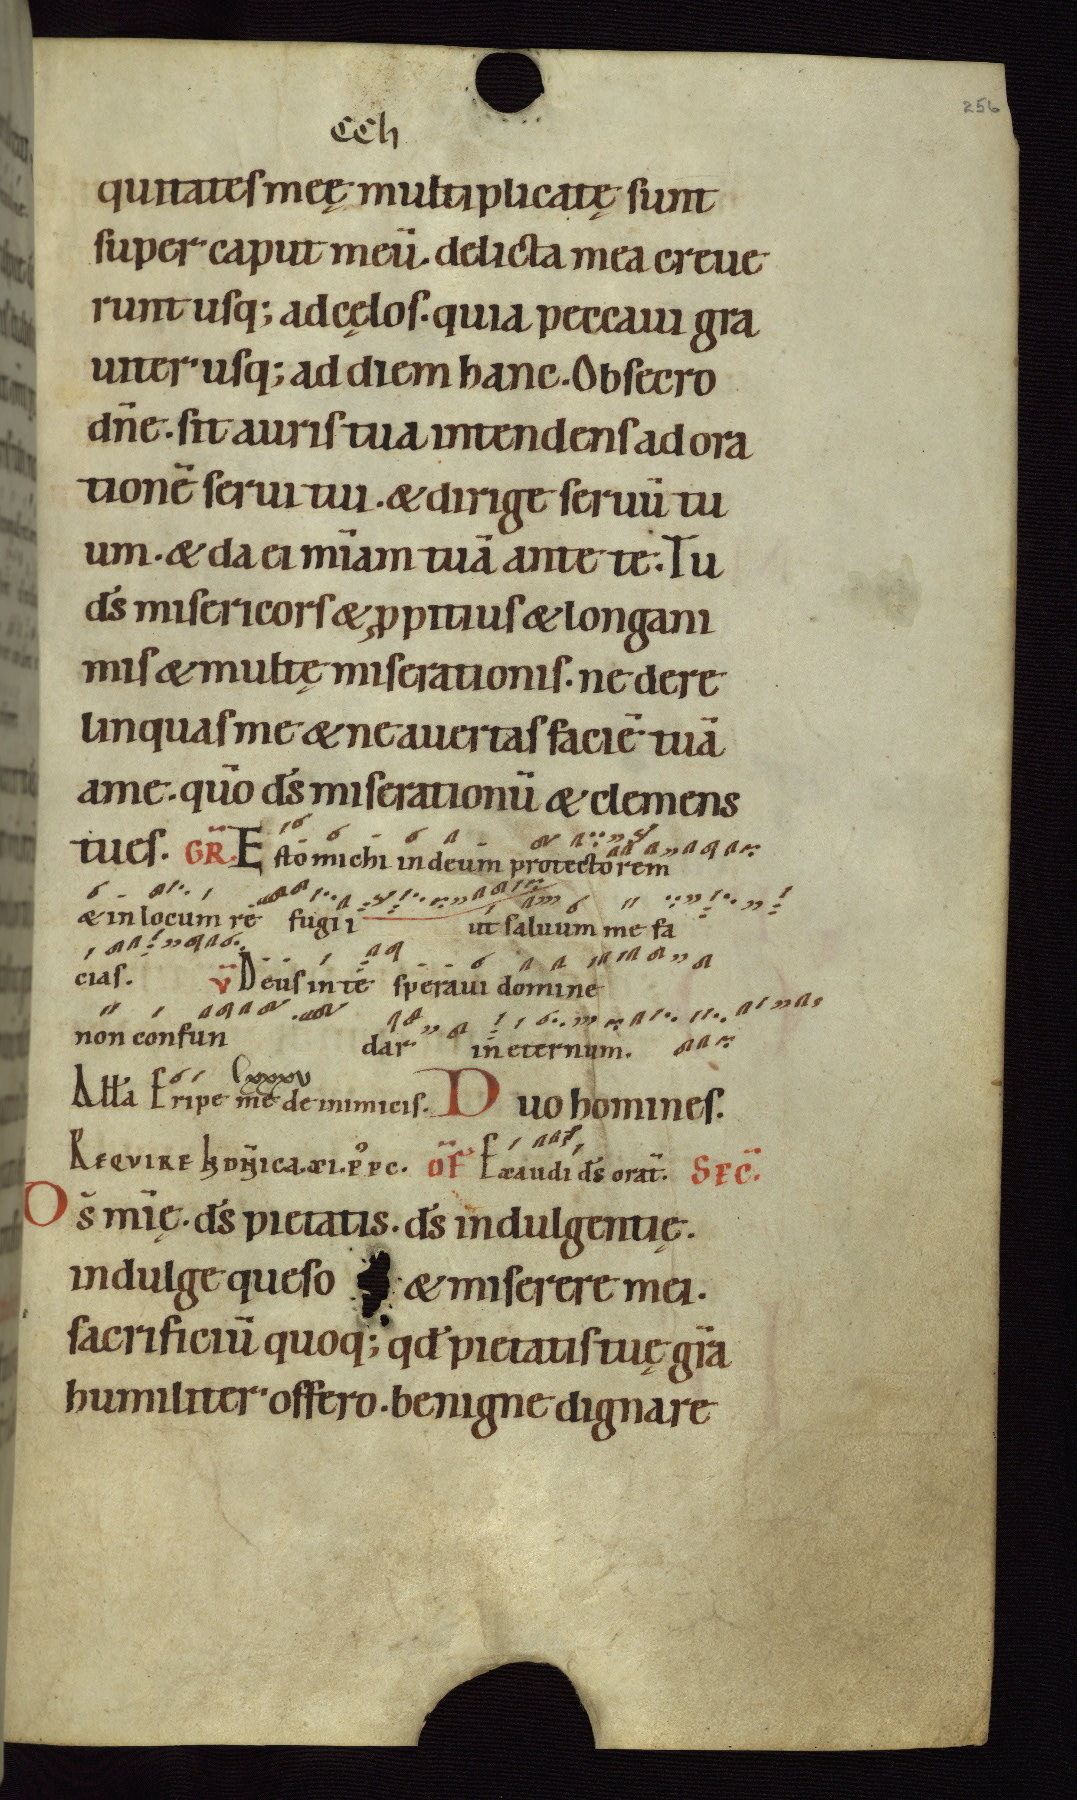 256
CCli
quitates meę multiplicatę sunt
super caput meū. delicta mea creue
runt usq; ad cęlos. quia peccaui gra
uiter usq; ad diem hanc. Obsecro
dn̄e. sit auris tua intendens ad ora
tionē serui tui. & dirige seruū tu
um. & da ei mīam tuā ante te. Tu
d̄s misericors & ꝓpitius & longani
mis & multę miserationis. ne dere
linquas me & ne auertas faciē tuā
a me. quō d̄s miserationū & clemens
tu es. GR̄. Esto michi in deum protectorem
& in locum refugii ut saluum me fa
cias. v̄ Deus in te speraui domine
non confundar in eternum.
lxxxv
Alla Eripe me de inimicis. Duo homines.
REQVIRE dn̄ica. xi. OF̄ Exaudi d̄s orat̄. SEC̄.
Ds̄ mīę. d̄s pietatis. d̄s indulgentię.
indulge queso & miserere mei.
sacrificiū quoq; qđ pietatis tuę grā
humiliter offero. benigne dignare